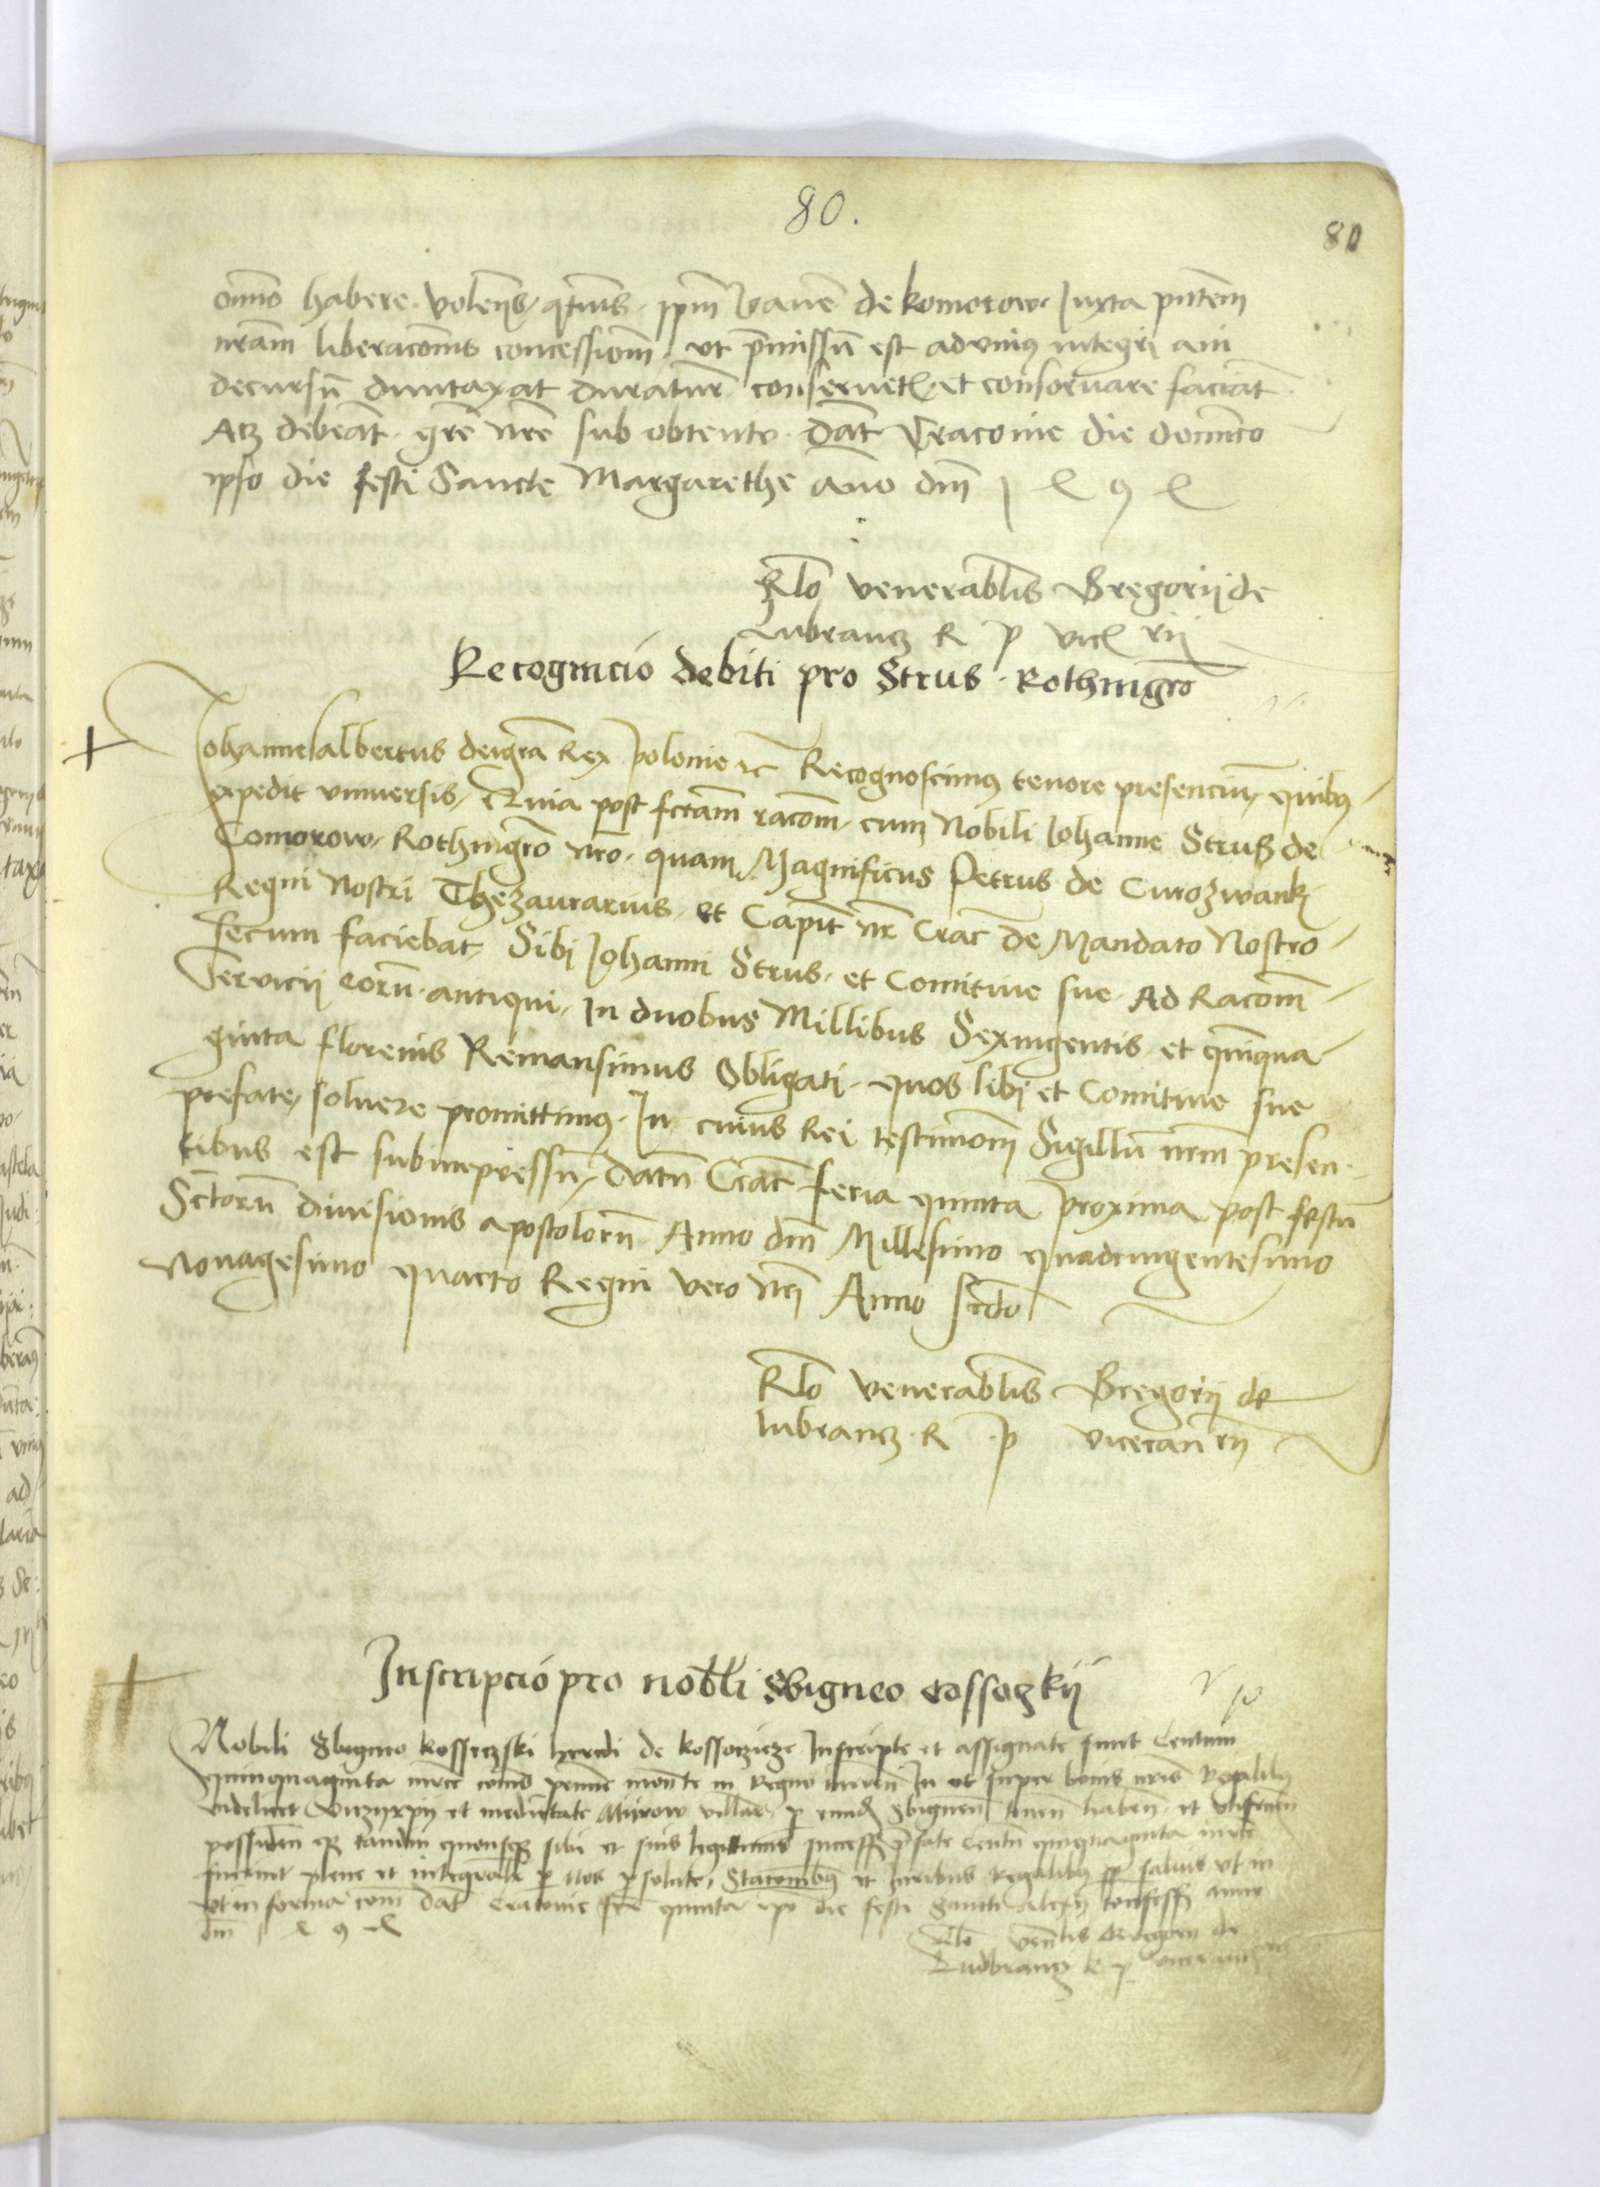 80.
80
omnino habere volens, quatenus ipsum Ivanem de Komorow Iuxta pntem
nram liberacionis concessionem ut premissum est ad unius integri anni
decursum duntaxat duraturam conservetis et conservare faciatis
Atq debeatis gre nre sub obtentu. Dat Cracovie die dominico
ipso die festi Sancte Margarethe anno dni
Rlo venerablis Gregorii de
Lubrancz R P vicl rii
Recognicio debiti pro Strus Rothmgro
Johannesalbertus dei gra Rex polonie etc Recognoscimus tenore presencium quibus
expedit universis, Quia post fctam racom cum Nobili Johanne Strusz de
Comorow Rothmgro nro quam Magnificus Petrus de Curozwank
Regni Nostri Thezaurarius et Capit nr Crac de Mandato Nostro
secum faciebat, Sibi Johanni Strus et Comitive sue Ad Racom
Servicii eorum antiqui, In duobus Millibus Sexingentis et quinqua
ginta florenis Remansimus Obligati quos sibi et Comitive sue
prefate, solvere promittimus. In cuius Rei testimom Sigillum nrm presen
tibus est subimpressum, Datum Crac feria quinta proxima post festum
Sctorum divisionis apostolorum Anno dni Millesimo quadringentesimo
Nonagesimo quarto Regni vero nri Anno scdo
Rlo venerablis Gregorii de
lubrancz R p vicecan rii
Inscripcio pro nobli Sbigneo Cossoczkii
Nobili Sbigneo Kosseczski heredi de Kossoczicze Inscripte et assignate sunt Centum
quinquaginta mrce cois pecunie monete in Regno In et super bonis nris Regalibus
videlicet et medietate villae p eundem Sbigneum haben et
possidem tamdiu quousq sibi et suis legittimis success prefate Centum quinquaginta mrce
fuerint plene et integraliter p nos persolute, Stacionibus et Iuribus Regalibus salvis ut in
ut in forma com Dat Cracovie fer quinta ipo die festi Sancti Alexii confess anno
dni
Rlo venlis Gregorii de
Ludbrancz R p